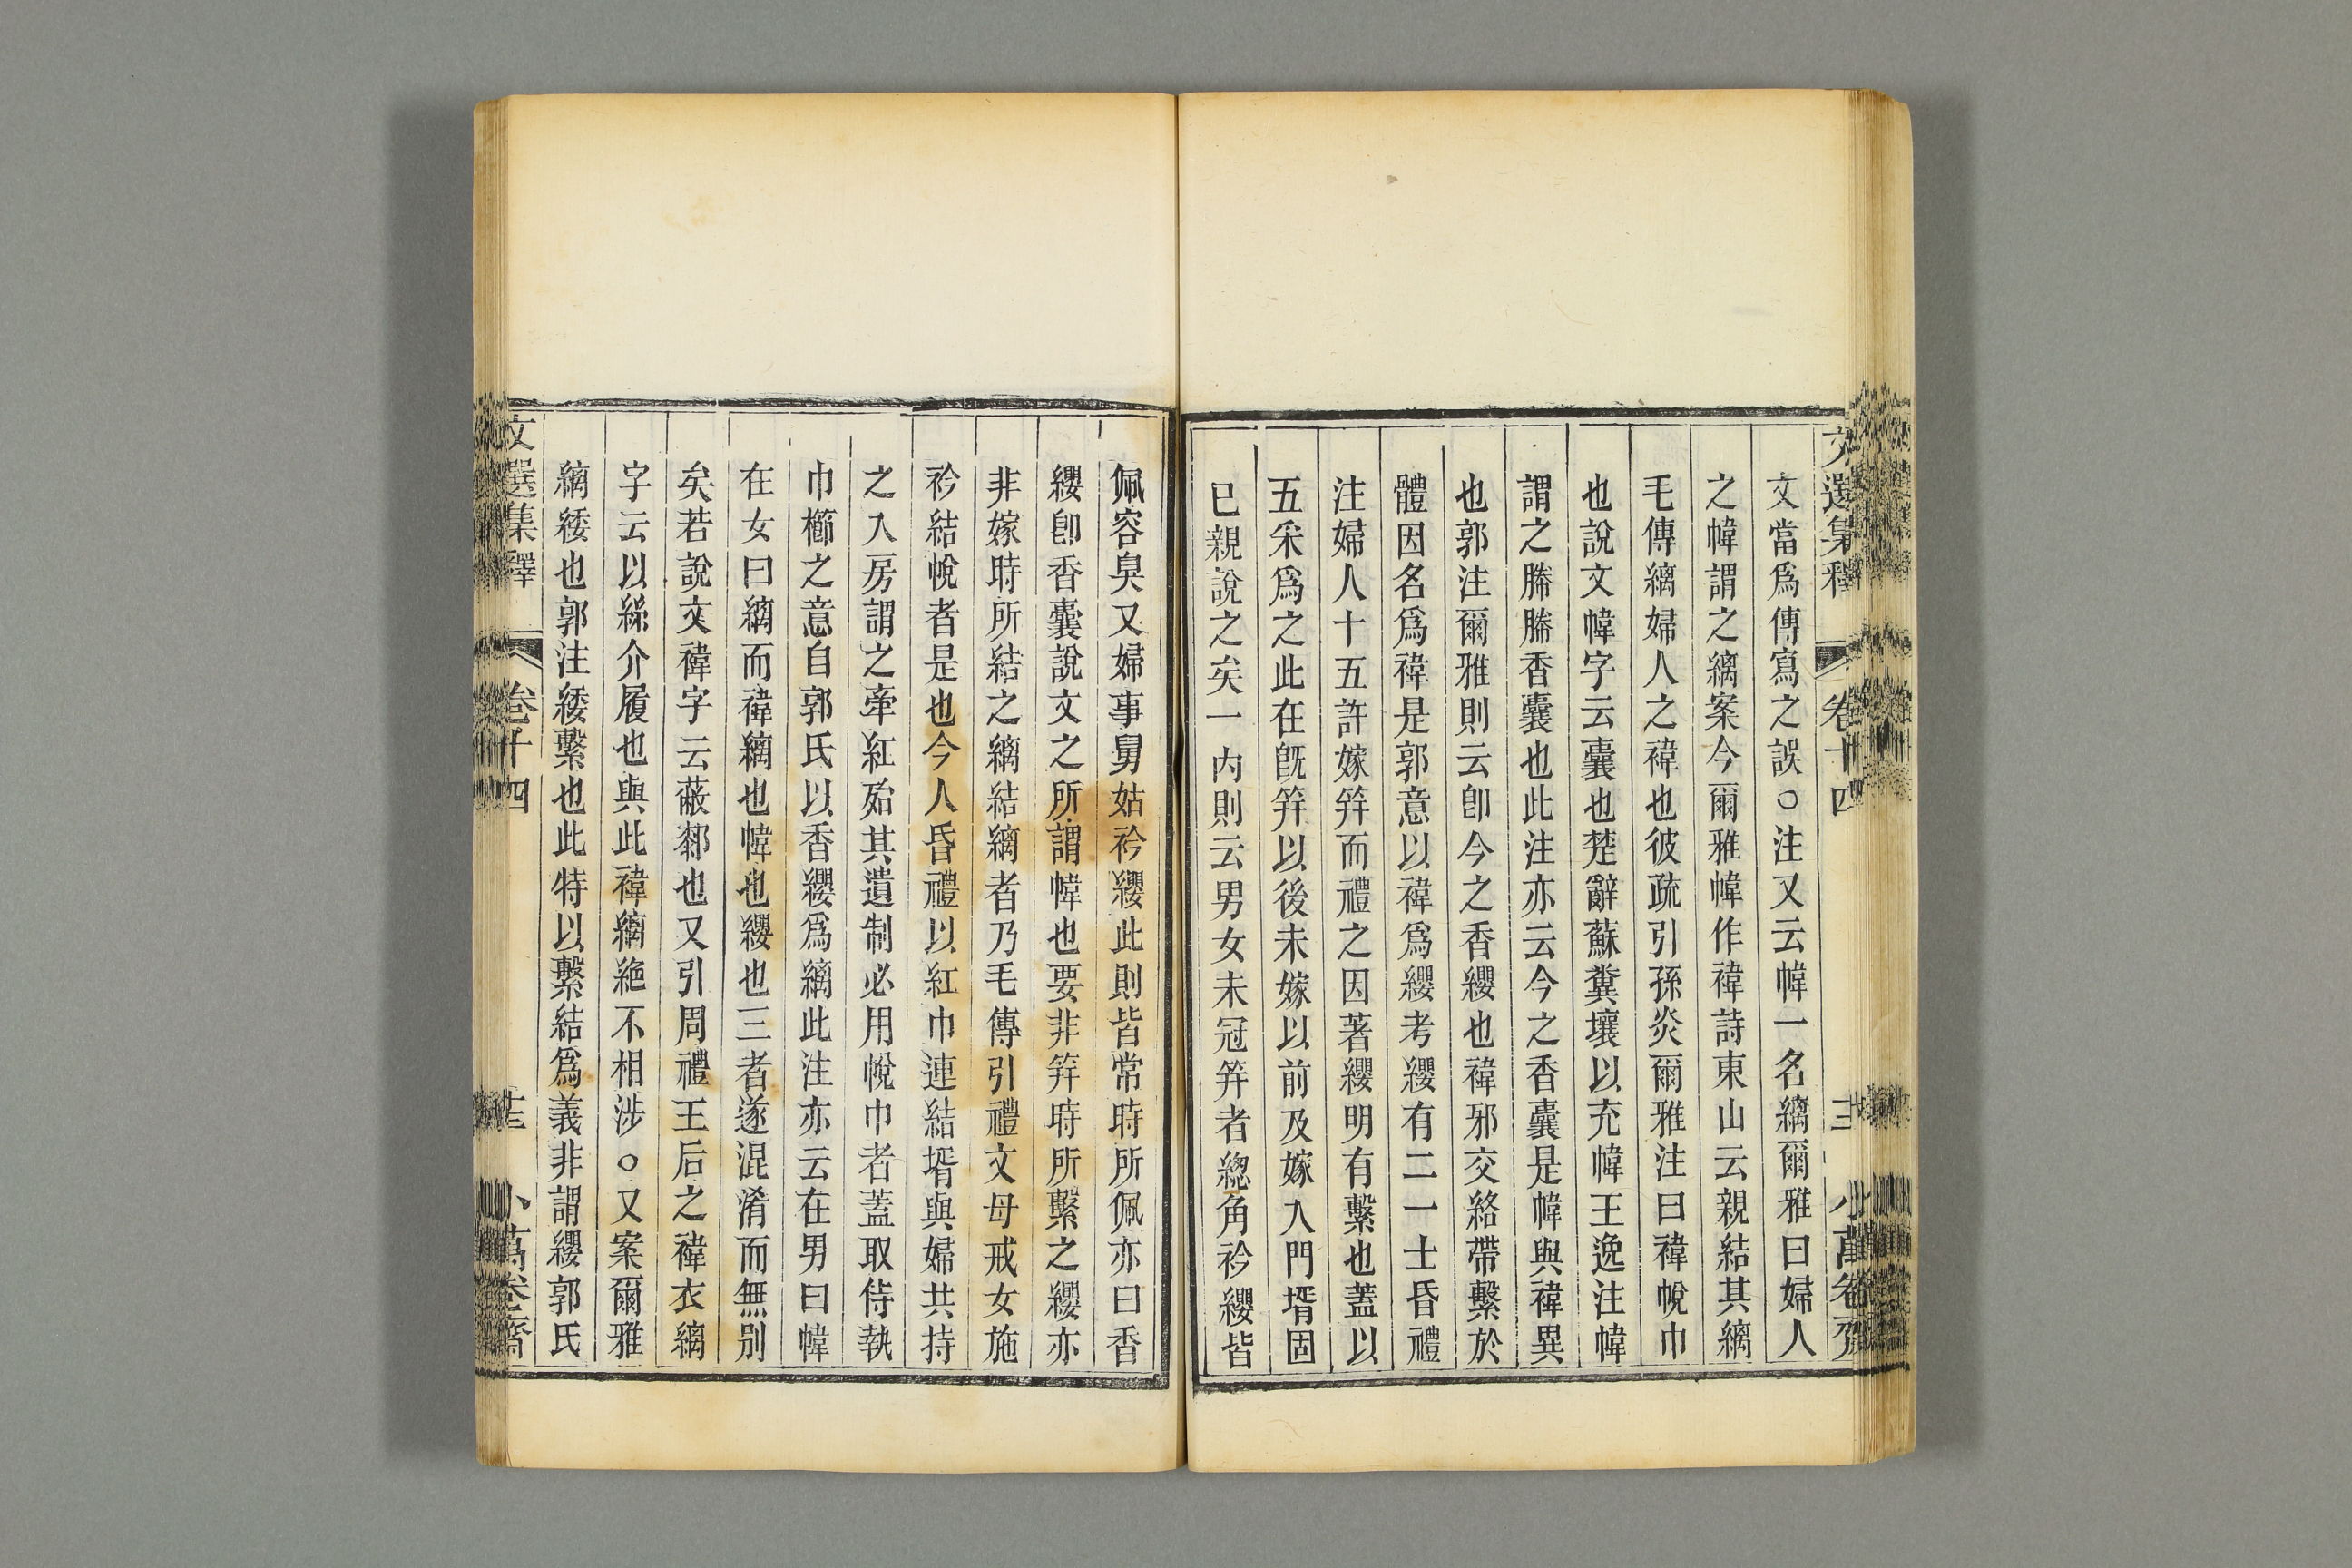 文選集釋 卷十四 小萬卷齋
文當爲傳寫之誤○注又云幃一名縭爾雅曰婦人
之幃謂之縭案今爾雅幃作褘詩東山云親結其縭
毛傳縭婦人之褘也彼疏引孫炎爾雅注曰褘帨巾
也說文幃字云囊也楚辭蘇糞壤以充幃王逸注幃
謂之幐幐香囊也此注亦云今之香囊是幃與褘異
也郭注爾雅則云卽今之香纓也褘邪交絡帶繫於
體因名爲褘是郭意以褘爲纓考纓有二一士昏禮
注婦人十五許嫁笄而禮之因著纓明有繫也蓋以
五采爲之此在旣笄以後未嫁以前及嫁入門壻固
已親說之矣一內則云男女未冠笄者總角衿纓皆
佩容臭又婦事舅姑衿纓此則皆常時所佩亦曰香
纓卽香囊說文之所謂幃也要非笄時所繫之纓亦
非嫁時所結之縭結縭者乃毛傳引禮文母戒女施
衿結帨者是也今人昏禮以紅巾連結壻與婦共持
之入房謂之牽紅殆其遺制必用帨巾者蓋取侍執
巾櫛之意自郭氏以香纓爲縭此注亦云在男曰幃
在女曰縭而褘縭也幃也纓也三者遂混淆而無別
矣若說文褘字云蔽厀也又引周禮王后之褘衣縭
字云以絲介履也與此褘縭絶不相涉○又案爾雅
縭緌也郭注緌繫也此特以繫結爲義非謂纓郭氏
文選集釋 卷十四 小萬卷齋